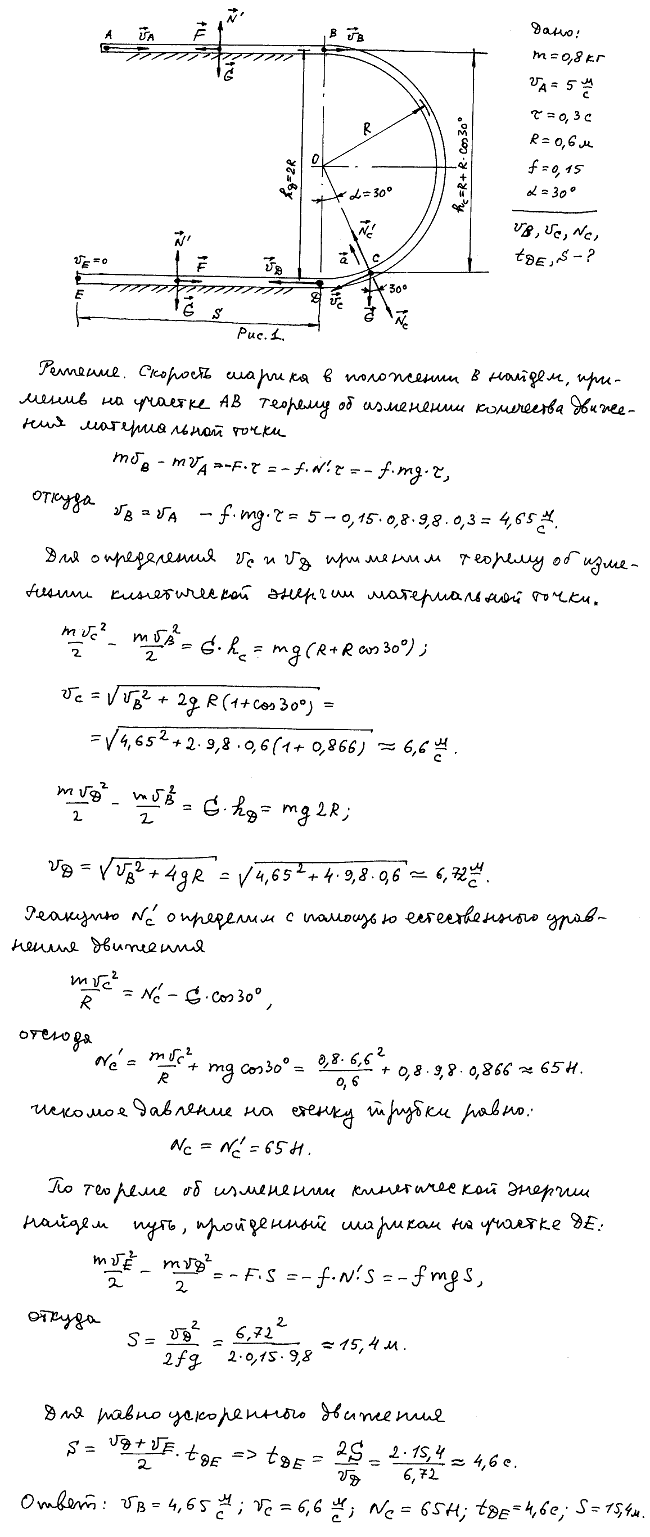 Дано:
m = 0,8 кг
v_A = 5 м/с
τ = 0,3 с
R = 0,6 м
f = 0,15
α = 30°
v_B, v_C, N_C,
t_DE, S - ?
A v⃗_A F⃗ N⃗' G⃗ B v⃗_B
R
h_D = 2R
h_C = R + R·cos30°
O
α = 30°
N⃗_C'
a⃗
C
v_E = 0 N⃗' F⃗ v⃗_D
E G⃗ D v⃗_C G⃗ 30°
S N⃗_C
Рис. 1.
Решение. Скорость шарика в положении В найдем, при-
менив на участке АВ теорему об изменении количества движе-
ния материальной точки
mv_B - mv_A = -F·τ = -f·N'·τ = -f·mg·τ,
откуда
v_B = v_A - f·mg·τ = 5 - 0,15·0,8·9,8·0,3 = 4,65 м/с.
Для определения v_C и v_D применим теорему об изме-
нении кинетической энергии материальной точки.
mv_C²/2 - mv_B²/2 = G·h_C = mg(R + R cos30°);
v_C = √(v_B² + 2gR(1 + cos30°)) =
= √(4,65² + 2·9,8·0,6(1 + 0,866)) ≈ 6,6 м/с.
mv_D²/2 - mv_B²/2 = G·h_D = mg2R;
v_D = √(v_B² + 4gR) = √(4,65² + 4·9,8·0,6) ≈ 6,72 м/с.
Реакцию N_C' определим с помощью естественного урав-
нения движения
mv_C²/R = N_C' - G·cos30°,
отсюда
N_C' = mv_C²/R + mg cos30° = 0,8·6,6²/0,6 + 0,8·9,8·0,866 ≈ 65 Н.
Искомое давление на стенку трубки равно:
N_C = N_C' = 65 Н.
По теореме об изменении кинетической энергии
найдем путь, пройденный шариком на участке DE:
mv_E²/2 - mv_D²/2 = -F·S = -f·N'·S = -fmgS,
откуда
S = v_D²/2fg = 6,72²/2·0,15·9,8 ≈ 15,4 м.
Для равноускоренного движения
S = (v_D + v_E)/2 · t_DE => t_DE = 2S/v_D = 2·15,4/6,72 ≈ 4,6 с.
Ответ: v_B = 4,65 м/с; v_C = 6,6 м/с; N_C = 65 Н; t_DE = 4,6 с; S = 15,4 м.